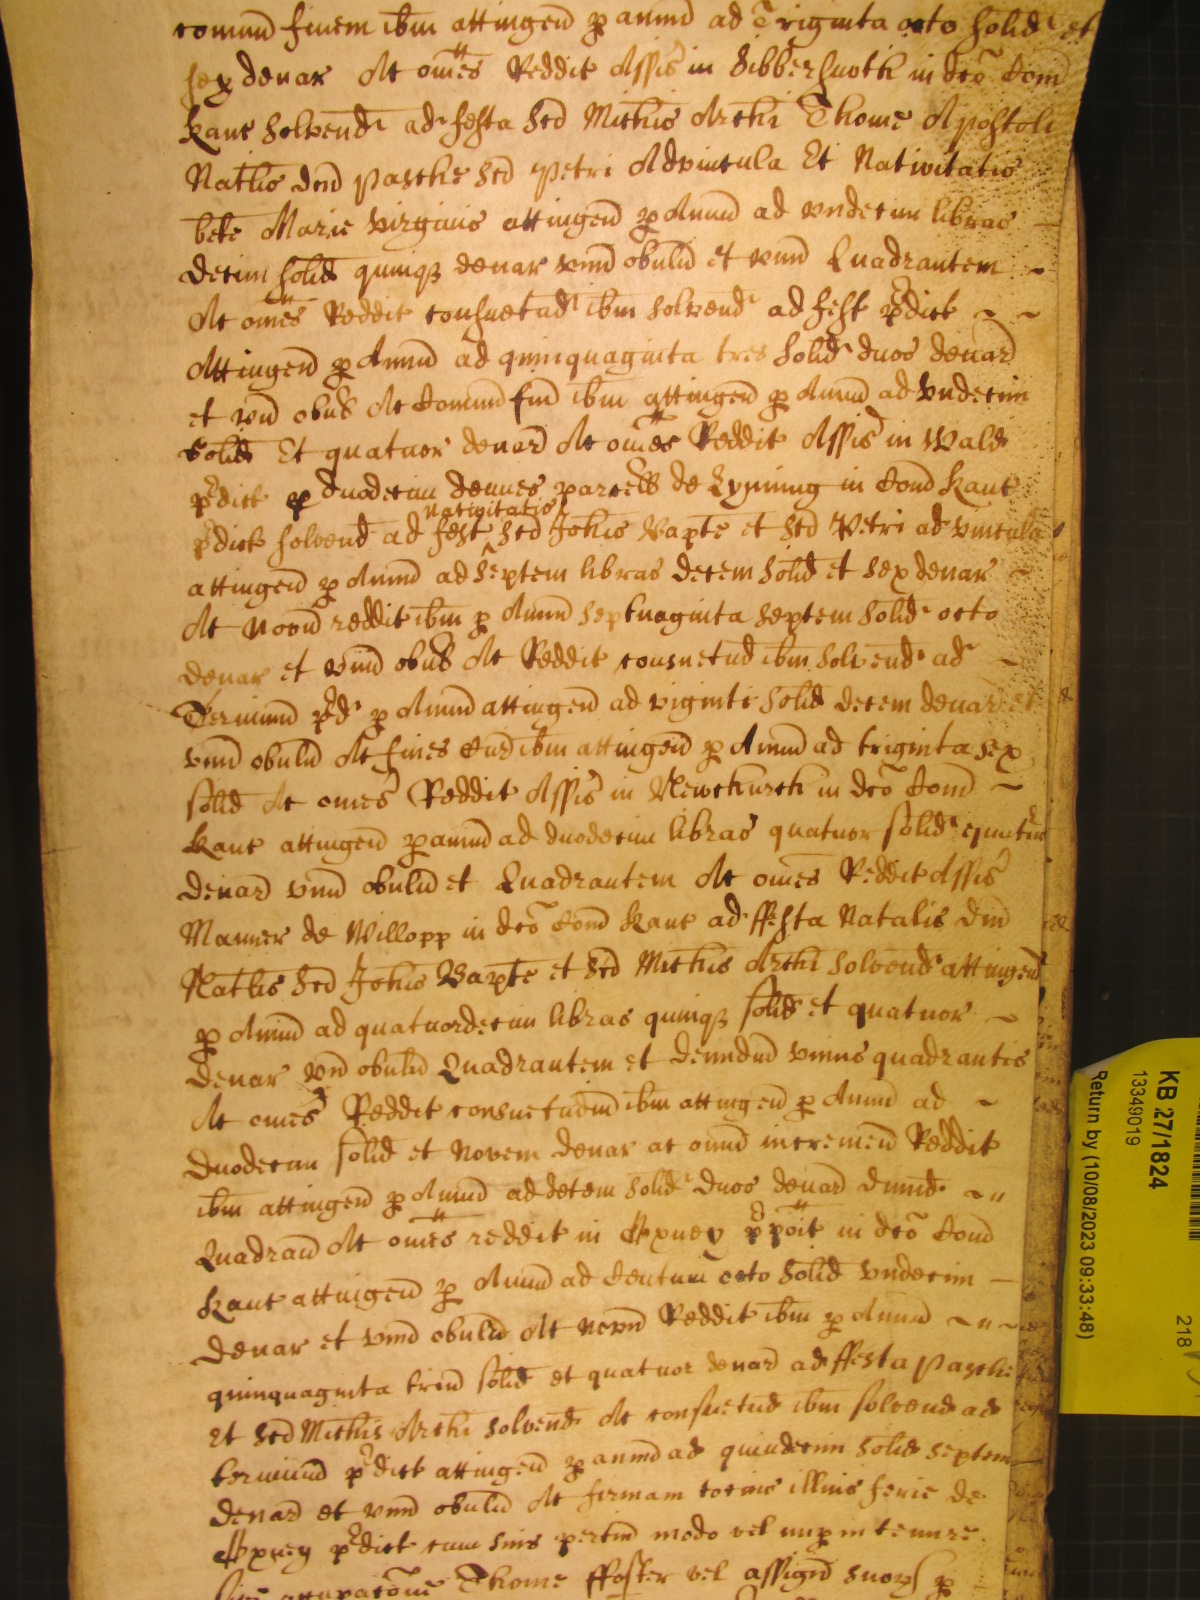 comun finem ibm attingen p annu ad Triginta octo solid et
sex denar Ac omes Reddit Assis in Sibbersnoth in dco Com
Kanc solvend ad festa Scd Michis Archi Thome Apostoli
Nathis dni Pasche Scd Petri Advincula Et Nativitatis
bete Marie Virginis attingen p Annu ad undecim libras
decim solid quinq denar unu obulu et unu Quadrantem
Ac omes Reddit consuetud ibm solvend ad fest pdict
Attingen p Annu ad quinquaginta tres solid duos denar
et un obul Ac Comun fin ibm attingen p Annu ad undecim
solid Et quatuor denar Ac omes Reddit Assis in Wald
pdict p duodecim dennes parcell de Lyming in Com Kanc
nativitatis
pdict solvend ad fest Scd Johis Bapte et Scd Petri ad vincula
attingen p Annu ad septem libras decem solid et sex denar
Ac novu reddit ibm p Annu septuaginta septem solid octo
denar et unu obul Ac Reddit consuetud ibm solvend ad
Terminu pd p Annu attingen ad viginti solid decem denar et
unu obulu Ac fines Cur ibm attingen p Annu ad triginta sex
solid Ac omes Reddit Assis in Newchurch in dco Com
Kanc attingen p annu ad duodecim libras quatuor solid
denar unu obulu et Quadrantem Ac omes Reddit Assis
Maner de Willopp in dco Com Kanc ad ffesta Natalis Dni
Nathis Scd Johis Bapte et Scd Michis Archi solvend attingen
p Annu ad quatuordecim libras quinq solid et quatuor
denar un obulu Quadrantem et demidiu unius quadrantis
Ac omes Reddit consuetudin ibm attingen p Annu ad
duodecim solid et novem denar ac omu incremen Reddit
ibm attingen p Annu ad decem solid duos denar dimid
Quadran Ac omes reddit in Apuey p poit in dco Com
Kanc attingen p Annu ad Centum octo solid undecim
denar et unu obulu Ac novu Reddit ibm p Annu
quinquaginta triu solid et quatuor denar ad ffesta Pasche
et Scd Michis Archi solvend Ac consuetud ibm solvend ad
terminu pdict attingen p annu ad quindecim solid septem
denar et unu obulu Ac firmam tocius illius ferie de
Apuey pdict cum suis pertin modo vel nup in tenure
sive occupacone Thome ffoster vel assign suor p
KB 27/1824
13349019
Return by (10/08/2023 09:33:48)
218